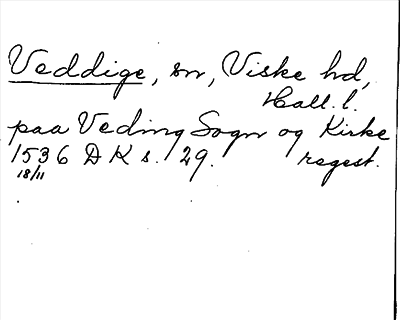 Veddige, sn, Viske hd,
Hall. l.
paa Veding Sogn og Kirke
1536 DK s. 29. regest.
18/11